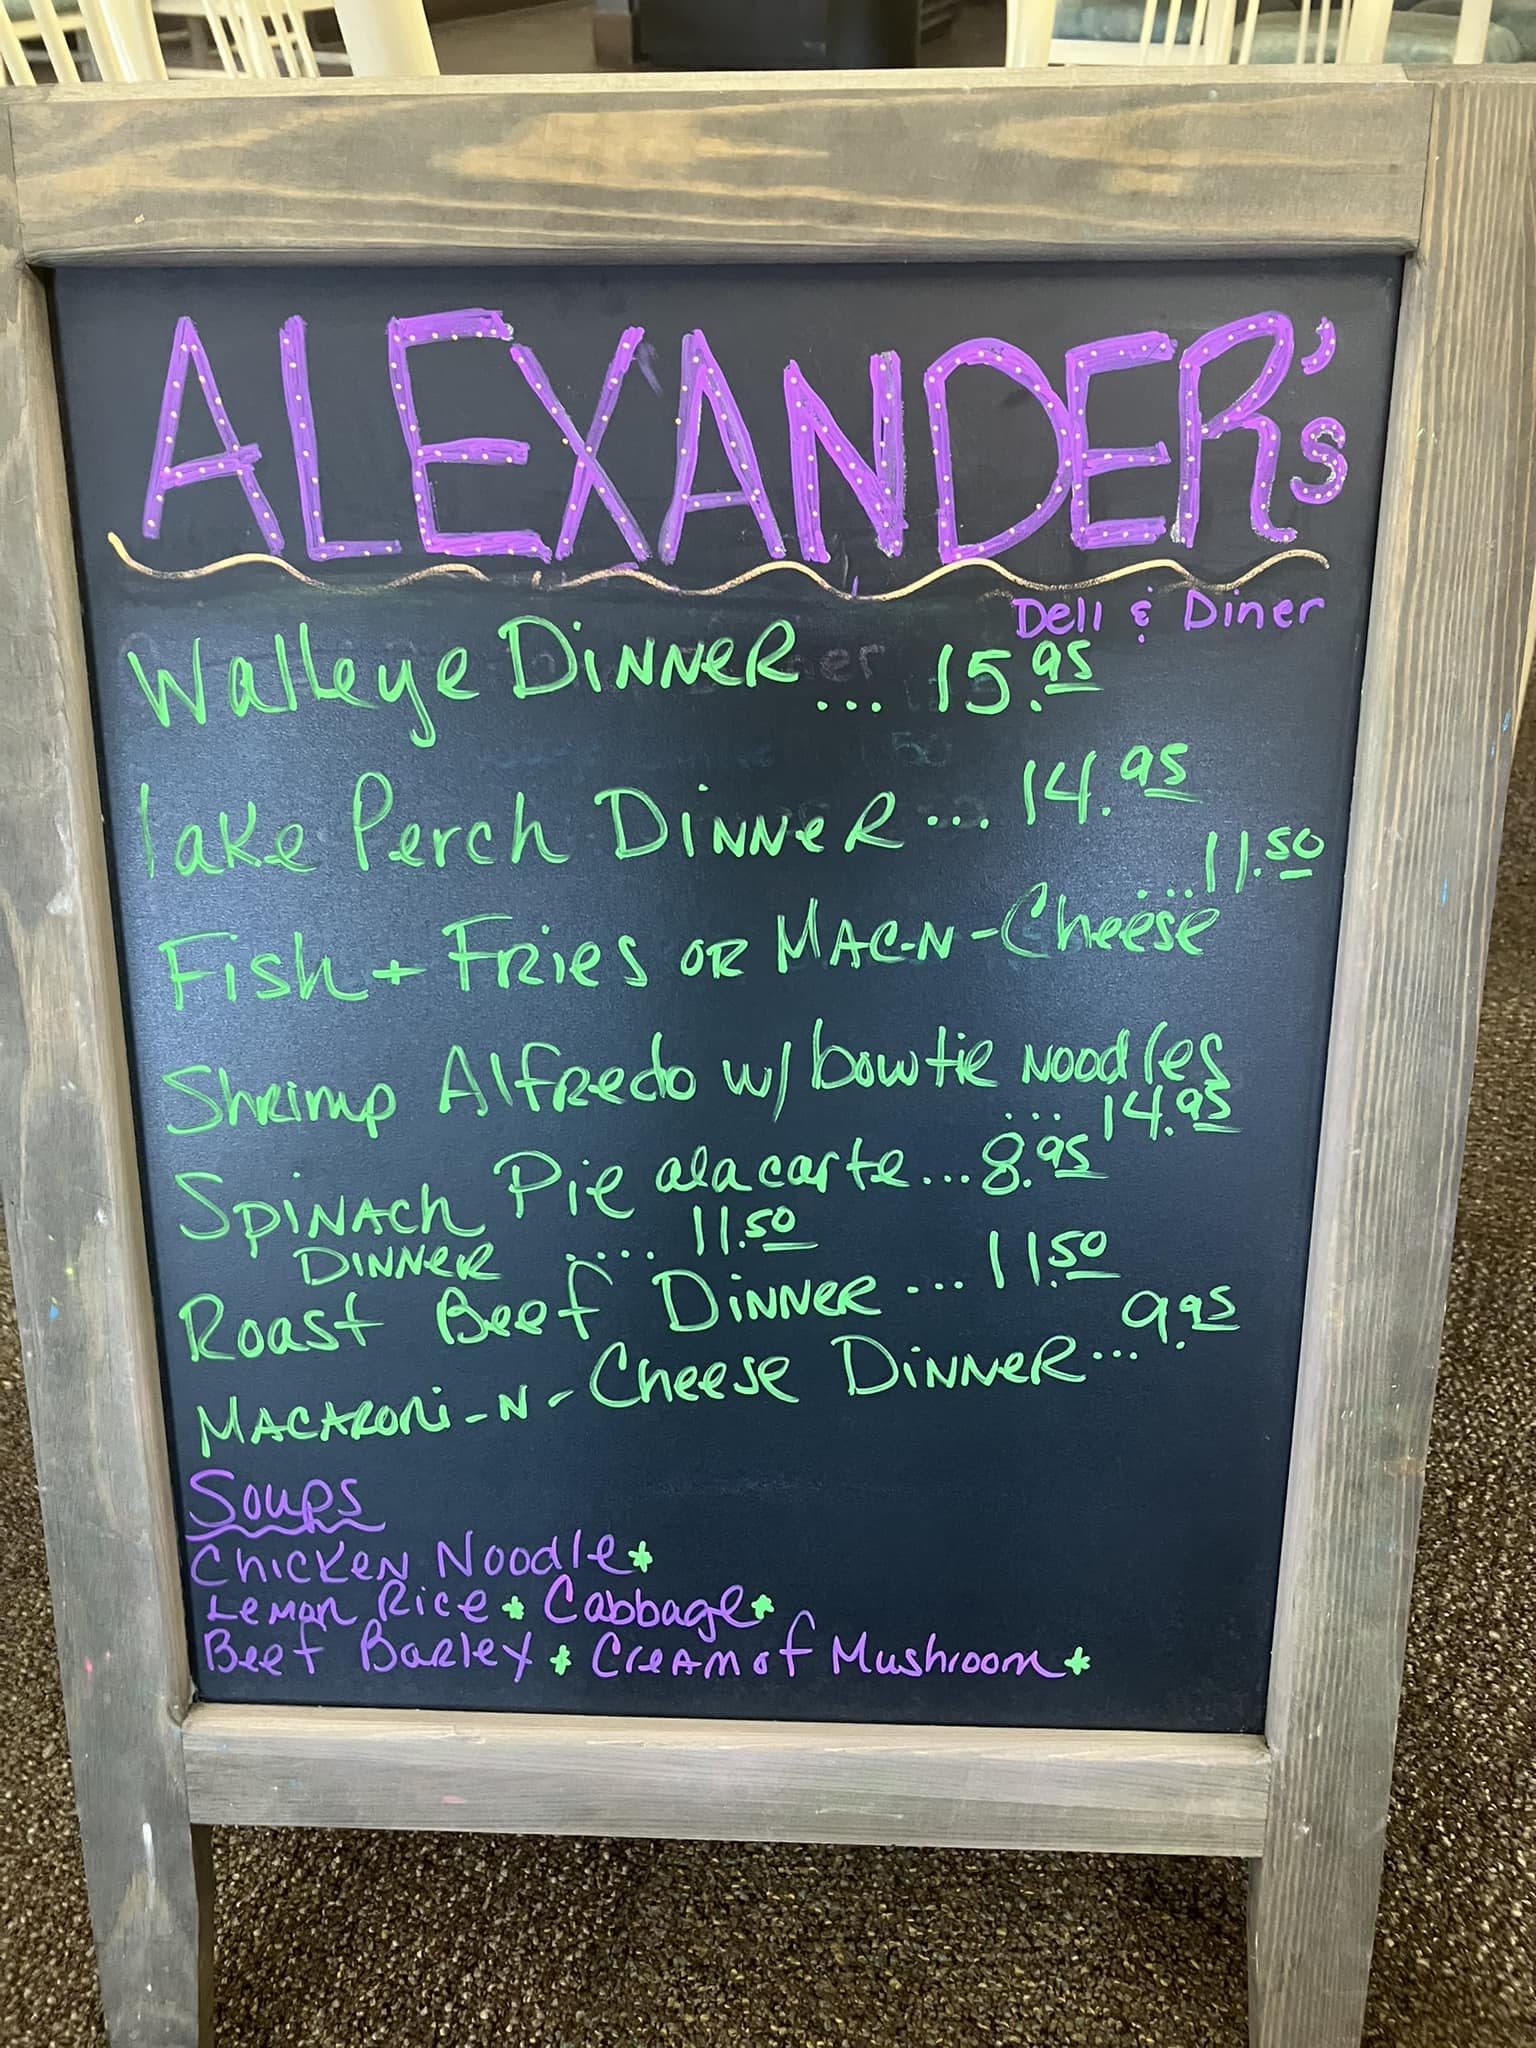 ALEXANDER's
Deli & Diner
Walleye DINNER ... 15.95
Lake Perch DINNER ... 14.95
Fish + FRies OR MAC-N-Cheese ... 11.50
Shrimp Alfredo w/ bowtie NOODles
... 14.95
SPINACh Pie alacarte ... 8.95
DINNER .... 11.50
ROAST Beef DINNER ... 11.50
MACARONi-N-Cheese DINNER ... 9.95
Soups
Chicken Noodle*
Lemon Rice * Cabbage*
Beef Barley * Cream of Mushroom*